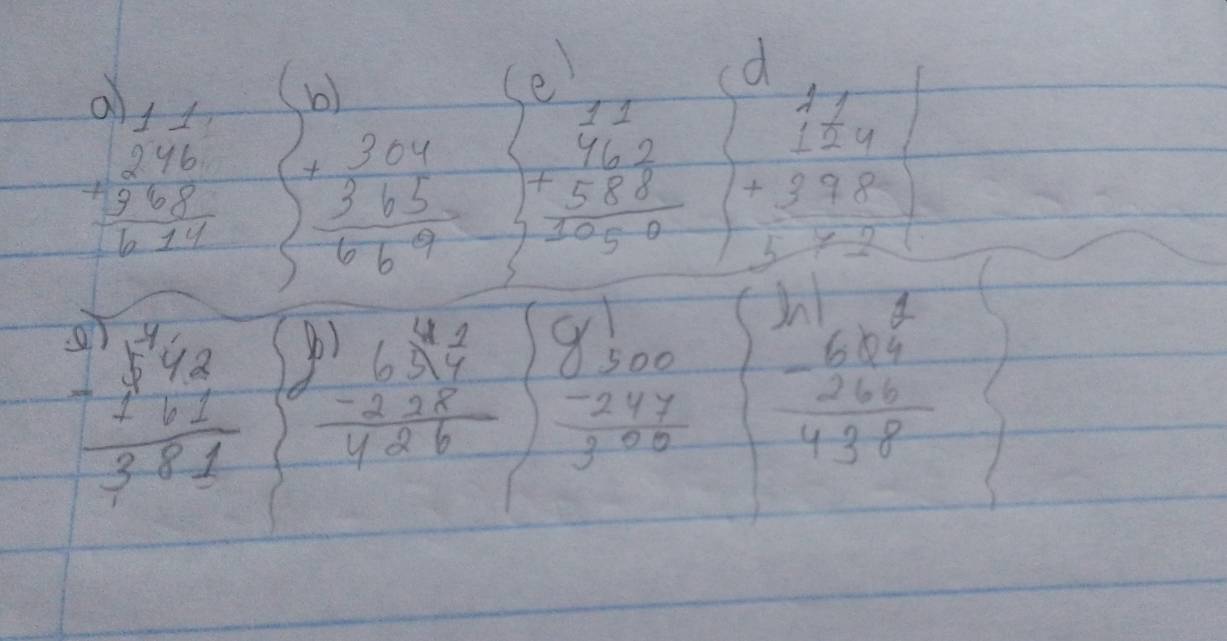 a) b) c) d
1 1 1 1 1 1
246 304 462 124
+ 368 + 365 + 588 + 398
614 669 1050 572
e) 4 f) 4 1 g) h) 1
542 654 500 604
- 161 - 228 - 247 - 266
381 426 300 438